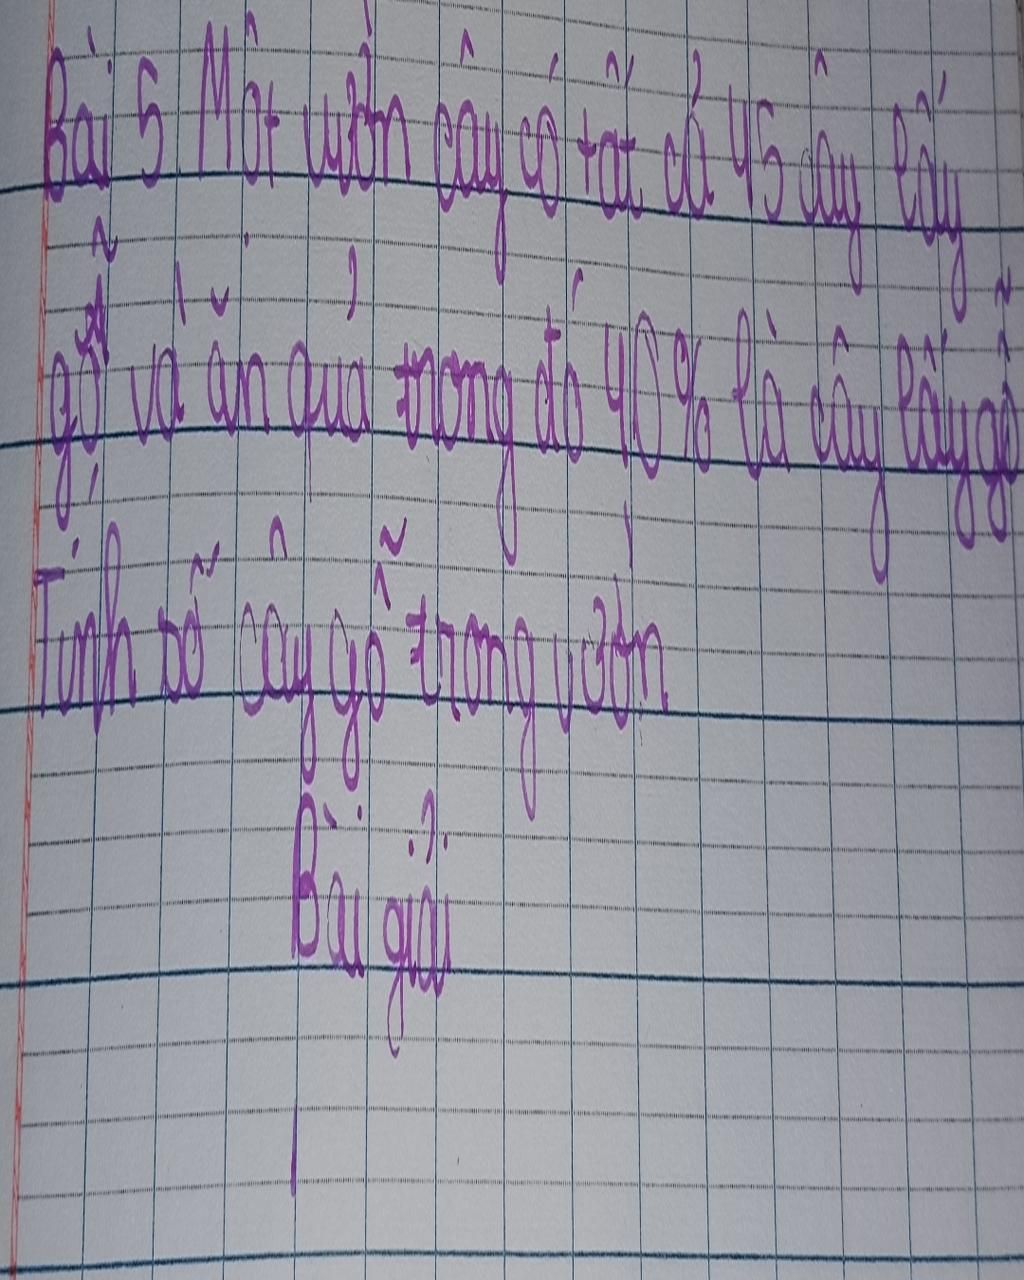 Bài 5 Một vườn cây có tất cả 45 cây lấy
gỗ và ăn quả trong đó 40% là cây lấy gỗ
Tính số cây gỗ trong vườn
Bài giải